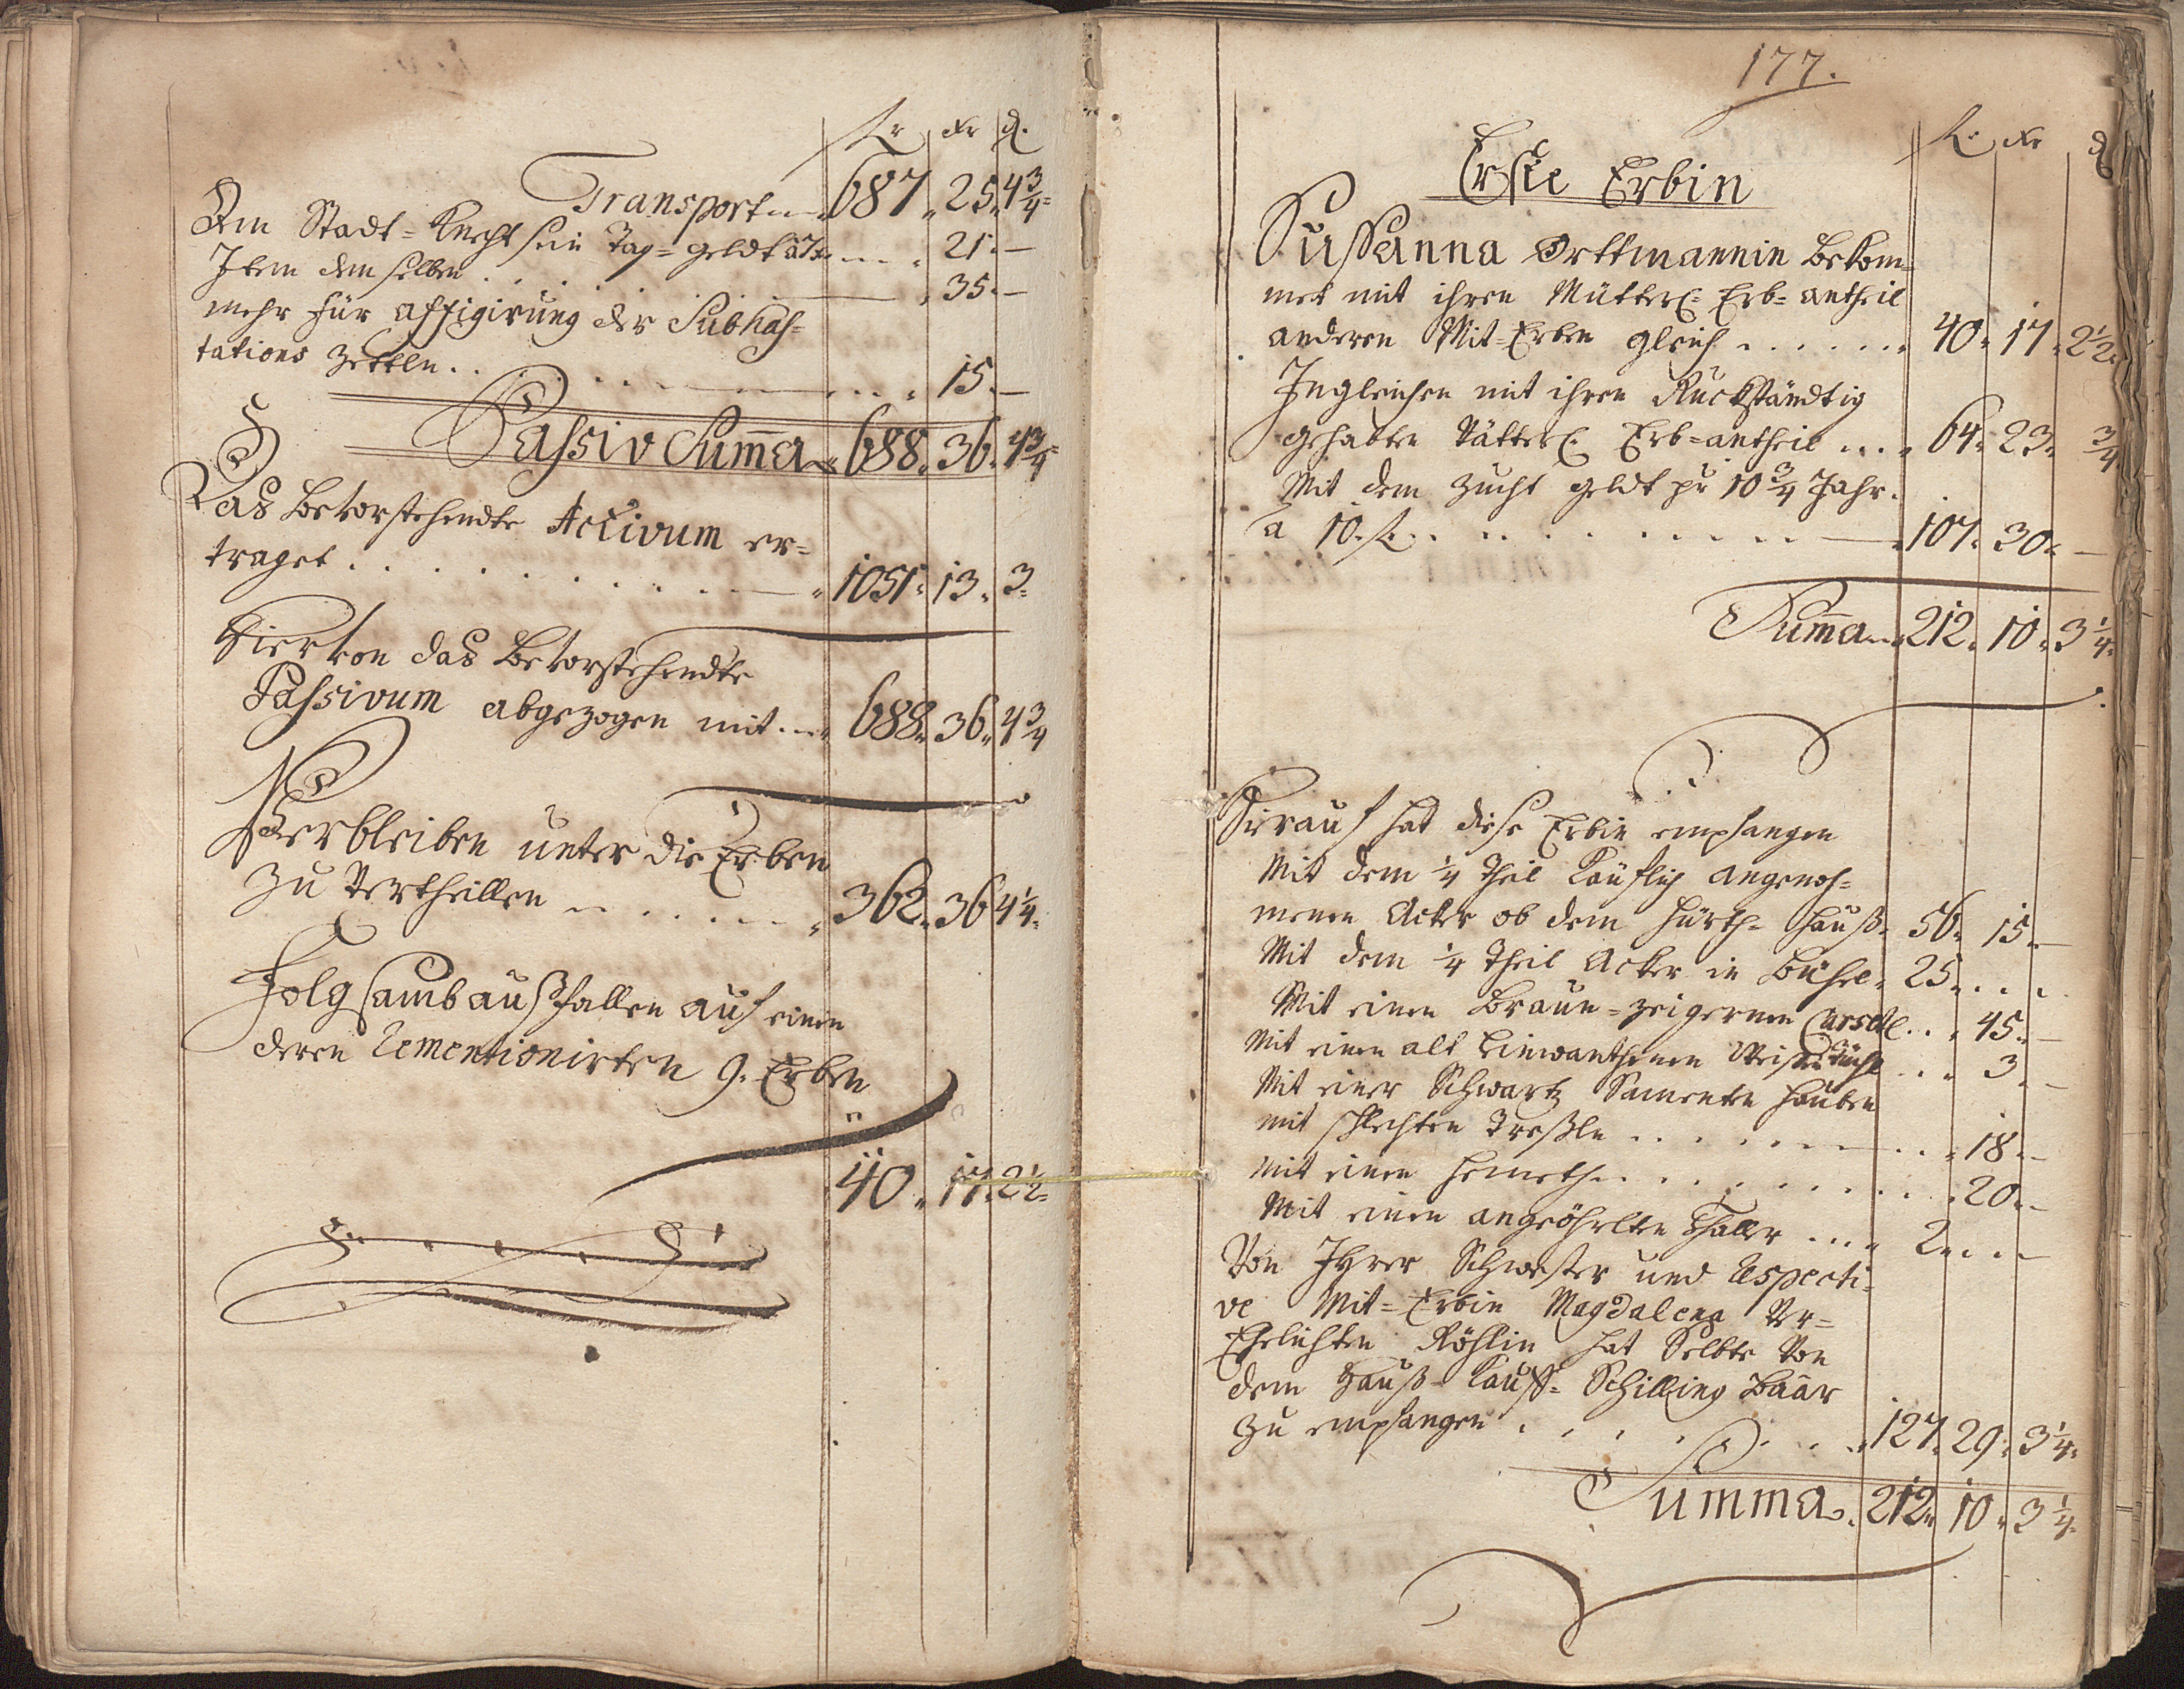 fl xr d.
Transport 687. 25. 4 3/4
Dem Stadt=Knecht sein Tag=geldt à 7 x 21. —
Item dem selben . . . . 35. —
mehr für affigirung der Subhas=
tations Zettln . . . 15. —
Passiv Sum̄a 688. 36. 4 3/4
Das bevorstehendte Activum er=
traget . . . . . . 1051. 13. 3.
Hiervon das bevorstehendte
Passivum abgezogen mit 688. 36. 4 3/4
Verbleiben unter die Erben
zu Vertheillen . . . . 362. 36 4 1/4.
Folgsamb außfallen auf einen
deren 9. Erben
40. 17. 2 1/2
177.
fl. xr d
Erste Erbin
Susanna Orttmannin bekom=
met mit ihren Mütterl: Erb=antheil
anderen Mit=Erben gleich . . . . 40. 17. 2 1/2.
Ingleichen mit ihren Ruckständtig
gehabten Vätterl: Erb=antheil . . . 64. 23. 3/4
Mit dem Zucht geldt pr 10 3/4 Jahr.
a 10. fl. . . . . . 107. 30. —
Sum̄a 212. 10. 3 1/4.
Hierauf hat diese Erbin empfangen
Mit dem 1/4 Theil käuflich angenoh=
menen Acker ob dem Hürth=hauß. 56. 15. —
Mit dem 1/4 Theil Acker in Bühel. 25. . . .
Mit einen braun=zeigernen Carsetl . . . 45. —
Mit einen alt Leinwanthenen tüchl . . . 3. —
Mit einer Schwartz Sameten Hauben
mit schlechten Treßln . . . . 18. —
Mit einen Hemeth . . . . . 20. —
Mit einen angeöhrlten Thaller . . . 2. . . —
Von Ihrer Schwester und respecti=
ve Mit=Erbin Magdalena Ver=
Ehelichten Rößlin hat Selbte Von
dem Hauß=Kauff=Schilling baar
zu empfangen . . . . . 127. 29. 3 1/4.
Summa. 212. 10. 3 1/4.